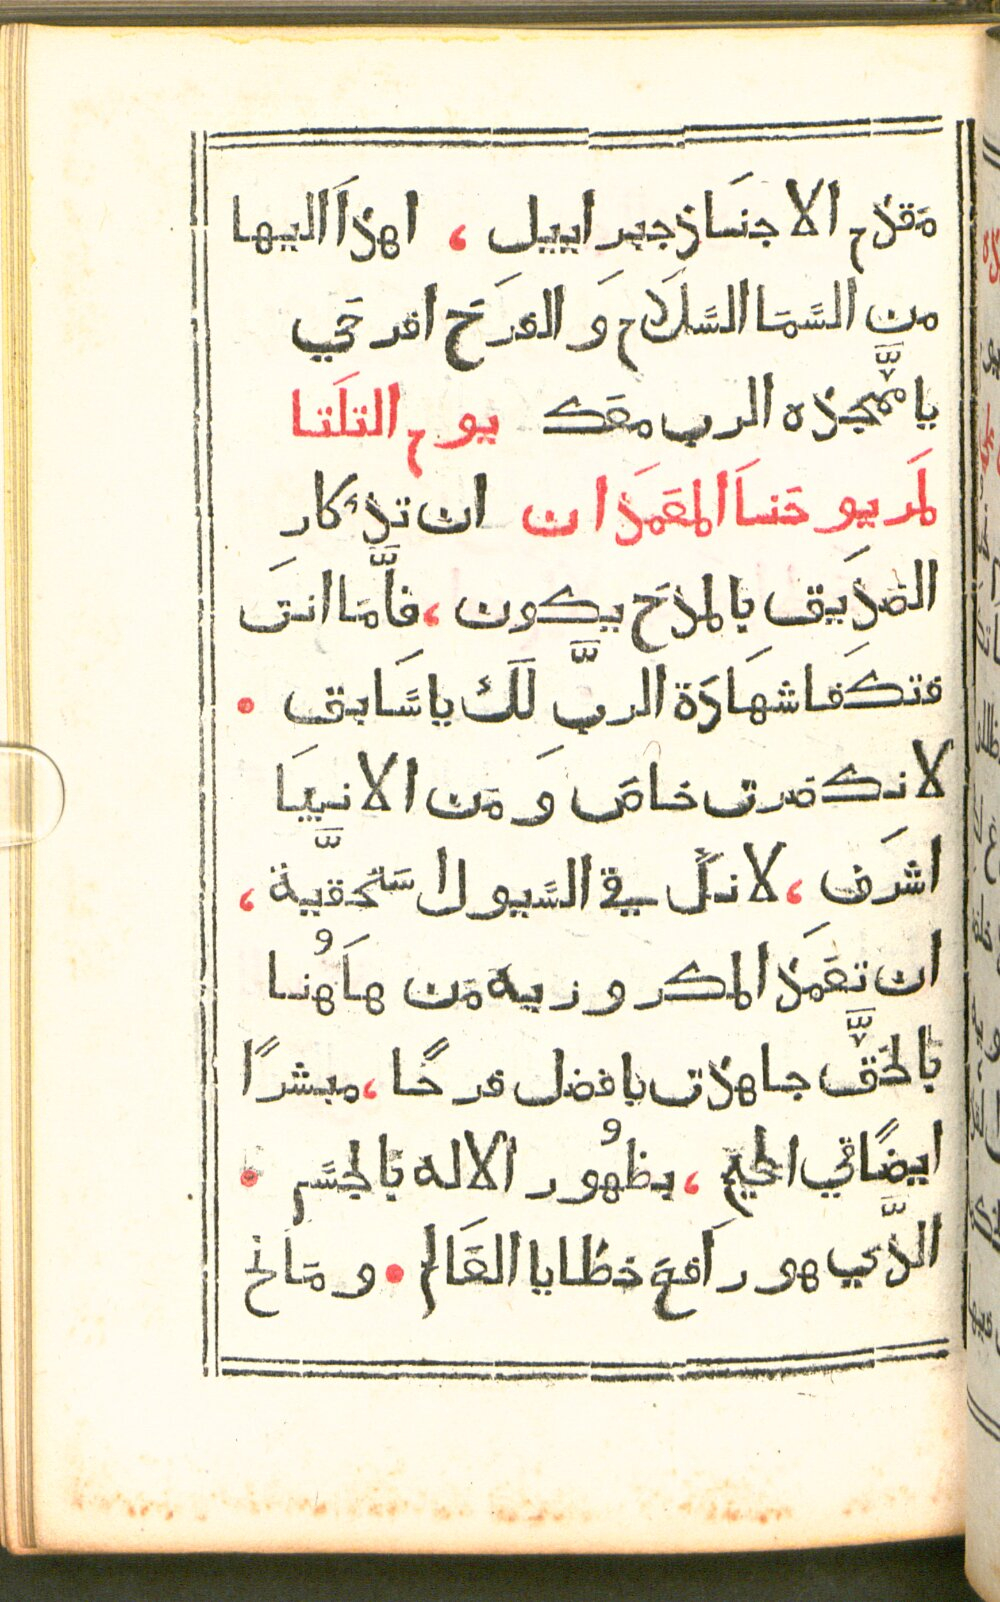 مَقدم الاجنَاد جبراييل ، اهدَا اليها
من السَّمَا السَّلَام وَ الفَرَح افرحَي
يا ممَّجده الرب معَك يوم التلَتا
لمَر يوحَنا المعَمَدان ان تذكار
الصدَيق بالمدَح يكون ، فأمَّا انتَ
فتكَفا شهاَدَة الربّ لَك يا سَّابق •
لانك صرت خاصَ وَ مَن الانبيَا
اشرَف ، لانكَ في السَّيول استحقَّية ،
ان تعَمَد المكروزبه مَن هَاهُنا
بالحَقّ جاهدت بافضل فرحًا ، مبشرًا
ايضًا في الجحيم ، بظهُور الاله بالجسَّم •
الذَّي هو رَافعَ خطايا العَالم • ومَانح